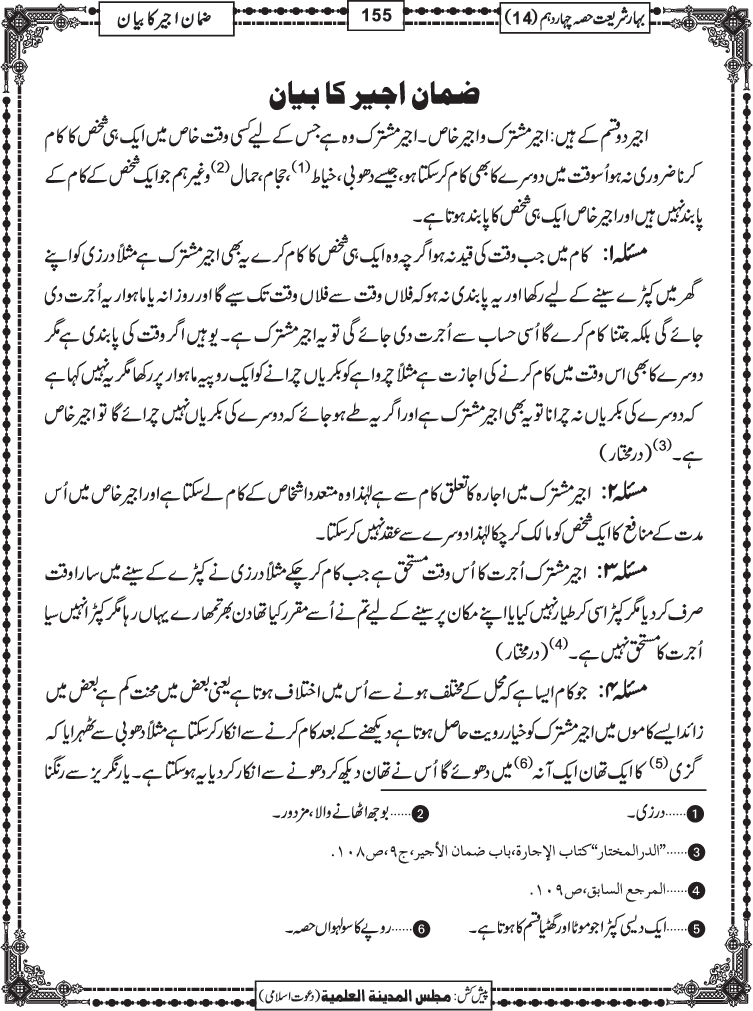 بہار شریعت حصہ چہاردہم (14)
155
ضمان اجیر کا بیان
ضمان اجیر کا بیان
اجیر دو قسم کے ہیں: اجیر مشترک و اجیر خاص۔ اجیر مشترک وہ ہے جس کے لیے کسی وقت خاص میں ایک ہی شخص کا کام
کرنا ضروری نہ ہو اُسوقت میں دوسرے کا بھی کام کر سکتا ہو، جیسے دھوبی، خیاط(1)، حجام، حمال(2) وغیرہم جو ایک شخص کے کام کے
پابند نہیں ہیں اور اجیر خاص ایک ہی شخص کا پابند ہوتا ہے۔
مسئلہ ۱: کام میں جب وقت کی قید نہ ہو اگرچہ وہ ایک ہی شخص کا کام کرے یہ بھی اجیر مشترک ہے مثلاً درزی کو اپنے
گھر میں کپڑے سینے کے لیے رکھا اور یہ پابندی نہ ہو کہ فلاں وقت سے فلاں وقت تک سیے گا اور روزانہ یا ماہوار یہ اُجرت دی
جائے گی بلکہ جتنا کام کرے گا اُسی حساب سے اُجرت دی جائے گی تو یہ اجیر مشترک ہے۔ یوہیں اگر وقت کی پابندی ہے مگر
دوسرے کا بھی اس وقت میں کام کرنے کی اجازت ہے مثلاً چرواہے کو بکریاں چرانے کو ایک روپیہ ماہوار پر رکھا مگر یہ نہیں کہا ہے
کہ دوسرے کی بکریاں نہ چرانا تو یہ بھی اجیر مشترک ہے اور اگر یہ طے ہو جائے کہ دوسرے کی بکریاں نہیں چرائے گا تو اجیر خاص
ہے۔(3) (درمختار)
مسئلہ ۲: اجیر مشترک میں اجارہ کا تعلق کام سے ہے لہٰذا وہ متعدد اشخاص کے کام لے سکتا ہے اور اجیر خاص میں اُس
مدت کے منافع کا ایک شخص کو مالک کر چکا لہٰذا دوسرے سے عقد نہیں کر سکتا۔
مسئلہ ۳: اجیر مشترک اُجرت کا اُس وقت مستحق ہے جب کام کر چکے مثلاً درزی نے کپڑے کے سینے میں سارا وقت
صرف کر دیا مگر کپڑا سی کر طیار نہیں کیا یا اپنے مکان پر سینے کے لیے تم نے اُسے مقرر کیا تھا دن بھر تمھارے یہاں رہا مگر کپڑا نہیں سیا
اُجرت کا مستحق نہیں ہے۔(4) (درمختار)
مسئلہ ۴: جو کام ایسا ہے کہ محل کے مختلف ہونے سے اُس میں اختلاف ہوتا ہے یعنی بعض میں محنت کم ہے بعض میں
زائد ایسے کاموں میں اجیر مشترک کو خیار رویت حاصل ہوتا ہے دیکھنے کے بعد کام کرنے سے انکار کر سکتا ہے مثلاً دھوبی سے ٹھہرایا کہ
گزی(5) کا ایک تھان ایک آنہ(6) میں دھوئے گا اُس نے تھان دیکھ کر دھونے سے انکار کر دیا یہ ہو سکتا ہے۔ یا رنگریز سے رنگنا
1......درزی۔ 2......بوجھ اٹھانے والا، مزدور۔
3......"الدرالمختار"کتاب الإجارة، باب ضمان الأجیر، ج۹، ص۱۰۸.
4......المرجع السابق، ص۱۰۹.
5......ایک دیسی کپڑا جو موٹا اور گھٹیا قسم کا ہوتا ہے۔ 6......روپے کا سولہواں حصہ۔
پیش کش: مجلس المدینة العلمیة (دعوت اسلامی)